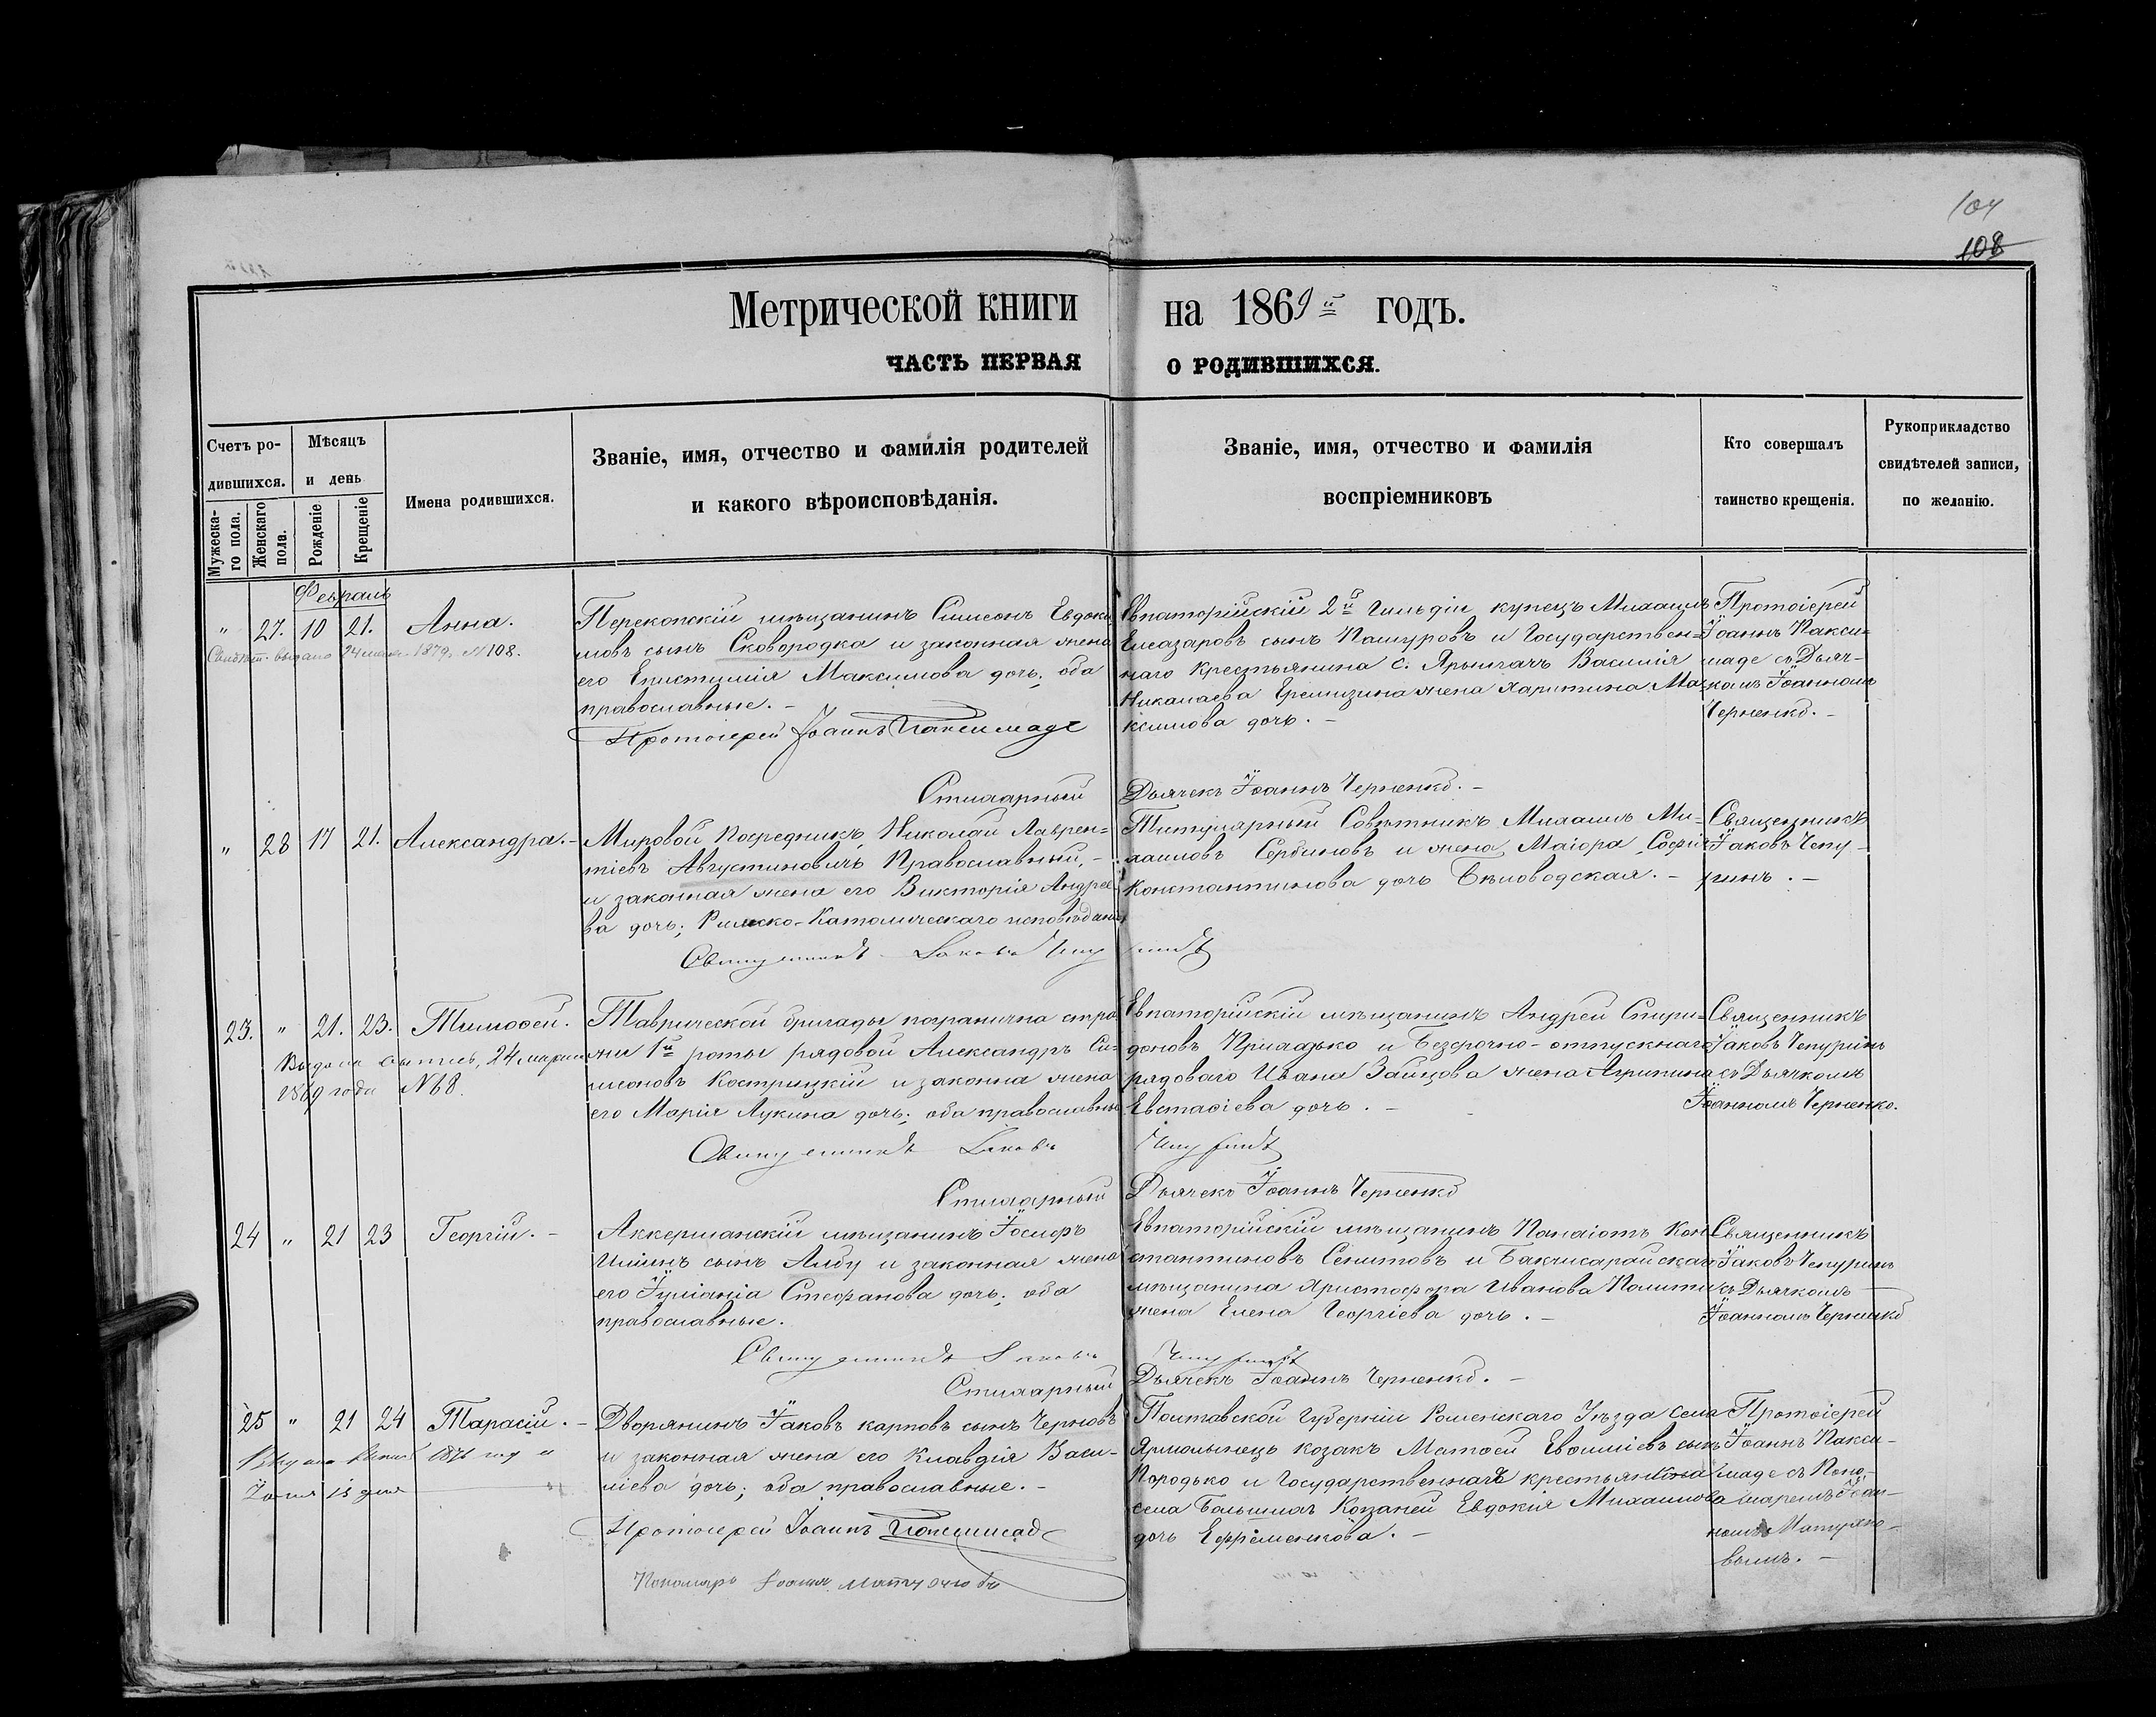 104
108
Метрической книги на 1869й годъ.
ЧАСТЬ ПЕРВАЯ О РОДИВШИХСЯ.
Счетъ ро-
дившихся.
Мужеска-
го пола.
Женскаго
пола.
Мѣсяцъ
и день
Рожденіе
Крещеніе
Имена родившихся.
Званіе, имя, отчество и фамилія родителей
и какого вѣроисповѣданія.
Званіе, имя, отчество и фамилія
воспріемниковъ
Кто совершалъ
таинство крещенія.
Рукоприкладство
свидѣтелей записи,
по желанію.
Февраль
" 27. 10 21. Анна.
Свидѣт. выдано 24 1879. №108.
Перекопскій мѣщанинъ Симеонъ Евдоки
мовъ сынъ Сковородка и законная жена
его Епистимія Максимова дочь; оба
православные. -
Протоіерей Іоаннъ Паксимаде
Евпаторійскій 2й гильдіи купецъ Михаилъ
Елеазаровъ сынъ Пашуровъ и Государствен=
наго Крестьянина с. Ярылгачъ Василія
Николаева Еремизина жена Харитина Ма-
ксимова дочь. -
Протоіерей
Іоаннъ Пакси=
маде съ Дьяч-
комъ Іоанномъ
Черненко. -
Стихарный Дьячекъ Іоаннъ Черненко. -
" 28 17 21. Александра. -
Мировой Посредникъ, Николай Лаврен=
тіевъ Августиновичъ Православный, -
и законная жена его Викторія Андрее
ва дочь; Римско-Католическаго исповѣданія
Титулярный Совѣтникъ Михаилъ Ми-
хаиловъ Сербиновъ и жена Маіора Софія
Константинова дочь Бѣловодская. -
Священникъ
Іаковъ Чепу-
ринъ. -
Священникъ Іаковъ Чепуринъ
23. " 21. 23. Тимоѳей.
Выдана выпись, 24 марта
1869 года №8.
Таврической бригады погранична стра
жи 1й роты рядовой Александръ Си-
меоновъ Кострицкій и законна жена
его Марія Лукина дочь; оба православные
Евпаторійскій мѣщанинъ Андрей Спири-
доновъ Приладько и Безсрочно-отпускнаго
рядоваго Ивана Зайцова жена Агрипина
Евстаѳіева дочь. -
Священникъ
Іаковъ Чепуринъ
съ Дьячкомъ
Іоанномъ Черненко.
Священникъ Іаковъ Чепуринъ
Стихарный Дьячекъ Іоаннъ Черненко
24 " 21 23 Георгій. -
Аккерманскій мѣщанинъ Іосифъ
Ильинъ сынъ Албу и законная жена
его Іуліанія Стефанова дочь; оба
православные.
Евпаторійскій мѣщанинъ Панаіотъ Кон
стантиновъ Селитовъ и Бакчисарайскаго
мѣщанина Христофора Иванова Полити
жена Елена Георгіева дочь. -
Священникъ
Іаковъ Чепуринъ
съ Дьячкомъ
Іоанномъ Черненко
Священникъ Іаковъ Чепуринъ
Стихарный Дьячекъ Іоаннъ Черненко. -
25 " 21 24 Тарасій. -
1876 год
Іюля 13 дня
Дворянинъ Іаковъ Карповъ сынъ Черновъ
и законная жена его Клавдія Васи-
ліева дочь; оба православные. -
Протоіерей Іоаннъ Паксимаде
Пономарь Іоаннъ
Полтавской Губерніи Роменскаго Уѣзда села
Ярмолынецъ козакъ Матѳей Евѳиміевъ сынъ
Породько и Государственнаго крестьянина
села Большихъ Копаней Евдокія Михаилова
дочь Ефременкова. -
Протоіерей
Іоаннъ Пакси-
маде съ Поно-
маремъ Іоан-
номъ
вымъ. -